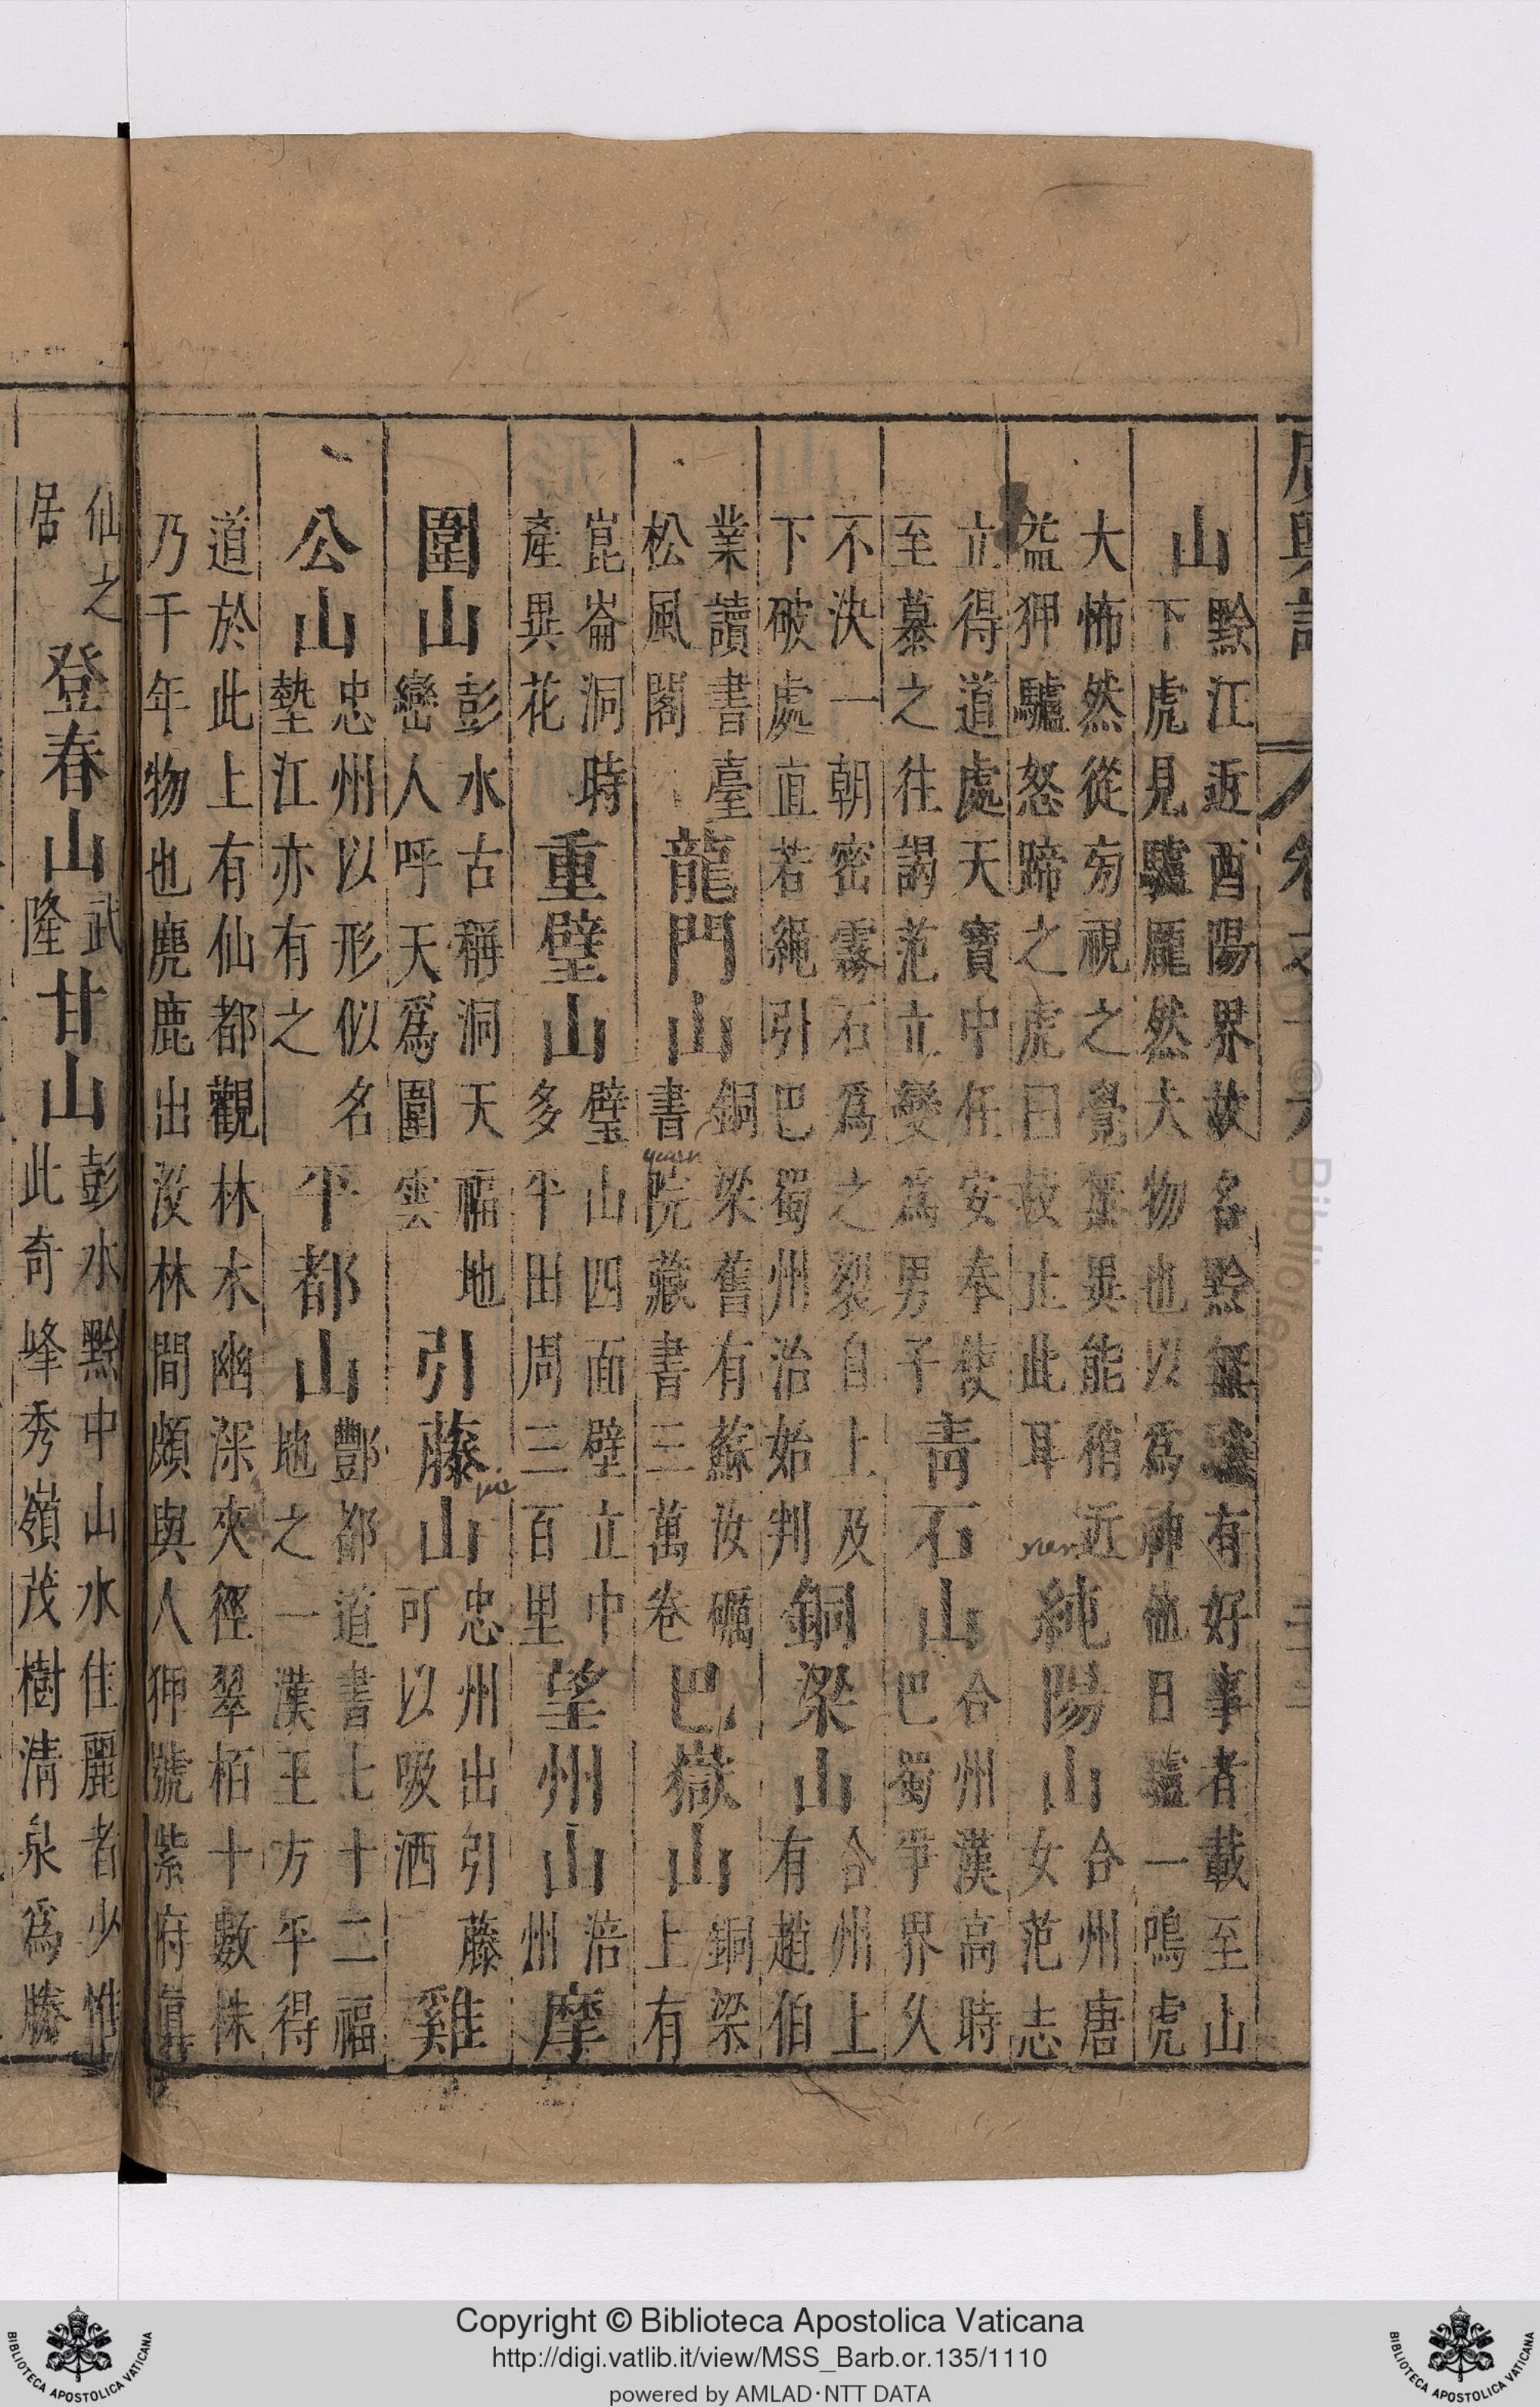 廣輿記 卷之十六
山黔江近酉陽界故名黔無驢有好事者載至山下虎見驢龎然大物也以爲神他日驢一鳴虎
大怖然從旁視之覺無異能稍近益狎驢怒蹄之虎曰技止此耳純陽山合州唐女范志
立得道處天寶中任安奉使至慕之往謁范立變爲男子青石山合州漢高時巴蜀爭界久
不決一朝密霧石爲之裂自上及下破處直若繩引巴蜀州治始判銅梁山合州上有趙伯
業讀書臺松風閣龍門山銅梁舊有蘇汝礪書院藏書三萬卷巴嶽山銅梁上有
崑崙洞時產異花重壁山璧山四面壁立中多平田周三百里望州山涪州摩
圍山彭水古稱洞天福地巒人呼天爲圍雲引藤山忠州出引藤可以吸洒雞
公山忠州以形似名墊江亦有之平都山酆都道書七十二福地之一漢王方平得
道於此上有仙都觀林木幽深夾徑翠栢十數株乃千年物也麂鹿出沒林間頗與人狎號紫府真
仙之居登春山武隆甘山彭水黔中山水佳麗者少惟此奇峰秀嶺茂樹清泉爲勝
yuen
Copyright © Biblioteca Apostolica Vaticana
http://digi.vatlib.it/view/MSS_Barb.or.135/1110
powered by AMLAD·NTT DATA
BIBLIOTECA APOSTOLICA VATICANA
BIBLIOTECA APOSTOLICA VATICANA